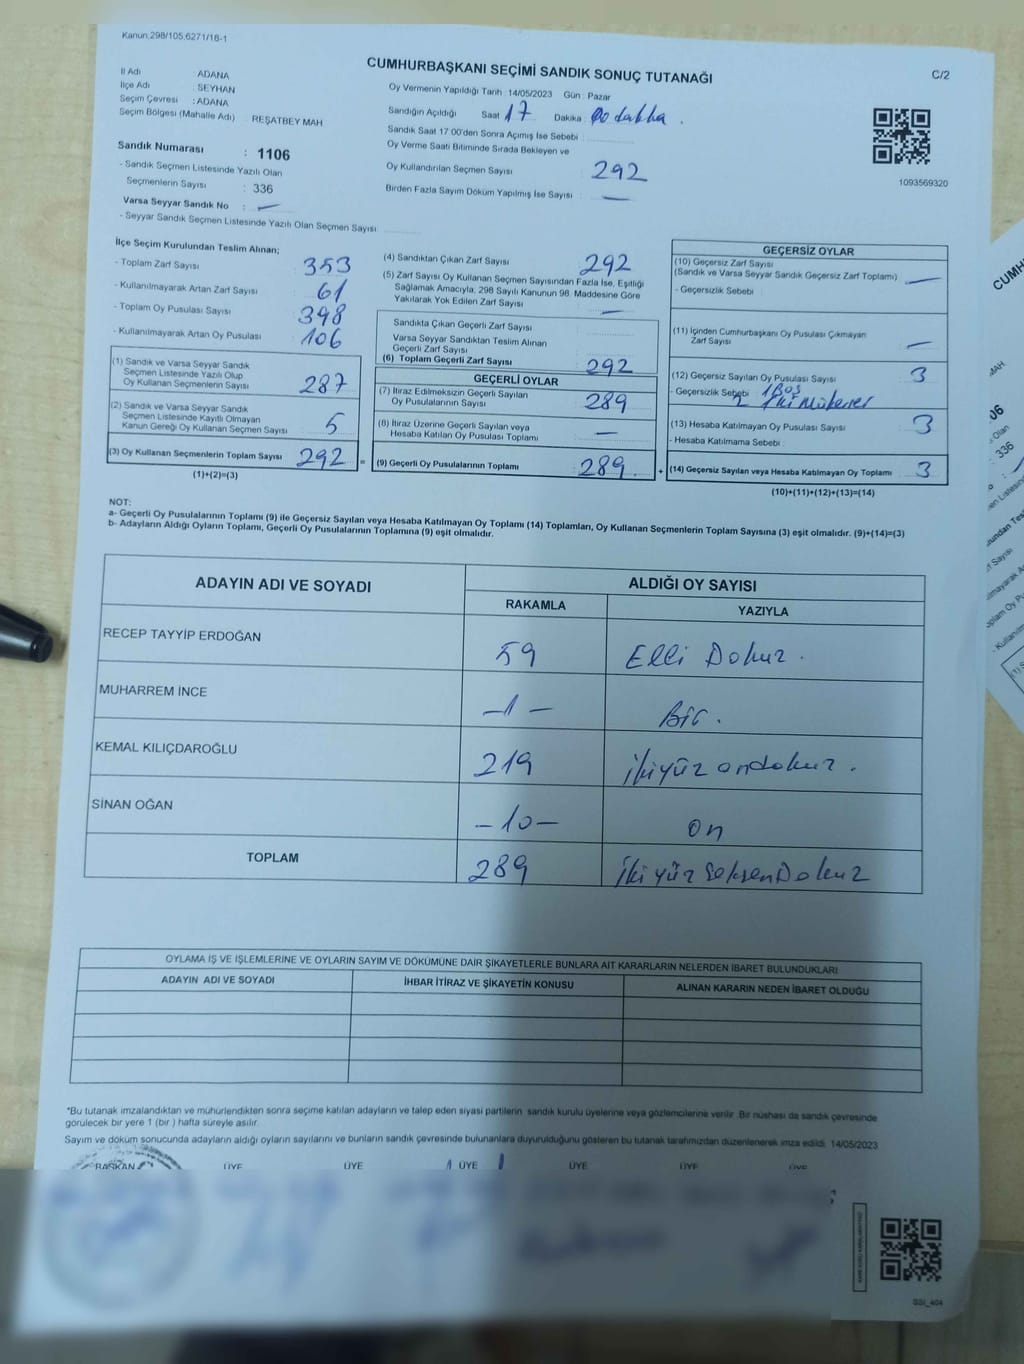 Kanun,298/105,6271/18-1
CUMHURBAŞKANI SEÇİMİ SANDIK SONUÇ TUTANAĞI
C/2
İl Adı : ADANA
İlçe Adı : SEYHAN
Seçim Çevresi : ADANA
Seçim Bölgesi (Mahalle Adı) : REŞATBEY MAH
Oy Vermenin Yapıldığı Tarih : 14/05/2023 Gün : Pazar
Sandığın Açıldığı Saat 17 Dakika : 00 dakka .
Sandık Saat 17 00'den Sonra Açımış İse Sebebi
Oy Verme Saati Bitiminde Sırada Bekleyen ve
Oy Kullandırılan Seçmen Sayısı : 292
Birden Fazla Sayım Döküm Yapılmış İse Sayısı : —
1093569320
Sandık Numarası : 1106
- Sandık Seçmen Listesinde Yazılı Olan
Seçmenlerin Sayısı : 336
Varsa Seyyar Sandık No : —
- Seyyar Sandık Seçmen Listesinde Yazılı Olan Seçmen Sayısı
İlçe Seçim Kurulundan Teslim Alınan;
- Toplam Zarf Sayısı : 353
- Kullanılmayarak Artan Zarf Sayısı : 61
- Toplam Oy Pusulası Sayısı : 398
- Kullanılmayarak Artan Oy Pusulası : 106
(1) Sandık ve Varsa Seyyar Sandık
Seçmen Listesinde Yazılı Olup
Oy Kullanan Seçmenlerin Sayısı 287
(2) Sandık ve Varsa Seyyar Sandık
Seçmen Listesinde Kayıtlı Olmayan
Kanun Gereği Oy Kullanan Seçmen Sayısı 5
(3) Oy Kullanan Seçmenlerin Toplam Sayısı 292 =
(1)+(2)=(3)
(4) Sandıktan Çıkan Zarf Sayısı 292
(5) Zarf Sayısı Oy Kullanan Seçmen Sayısından Fazla İse, Eşitliği
Sağlamak Amacıyla, 298 Sayılı Kanunun 98. Maddesine Göre
Yakılarak Yok Edilen Zarf Sayısı —
Sandıkta Çıkan Geçerli Zarf Sayısı
Varsa Seyyar Sandıktan Teslim Alınan
Geçerli Zarf Sayısı
(6) Toplam Geçerli Zarf Sayısı 292
GEÇERLİ OYLAR
(7) İtiraz Edilmeksizin Geçerli Sayılan
Oy Pusulalarının Sayısı 289
(8) İtiraz Üzerine Geçerli Sayılan veya
Hesaba Katılan Oy Pusulası Toplamı —
(9) Geçerli Oy Pusulalarının Toplamı 289 +
GEÇERSİZ OYLAR
(10) Geçersiz Zarf Sayısı
(Sandık ve Varsa Seyyar Sandık Geçersiz Zarf Toplamı) —
- Geçersizlik Sebebi
(11) İçinden Cumhurbaşkanı Oy Pusulası Çıkmayan
Zarf Sayısı —
(12) Geçersiz Sayılan Oy Pusulası Sayısı 3
- Geçersizlik Sebebi 1 Boş
2 İki Mükerrer
(13) Hesaba Katılmayan Oy Pusulası Sayısı 3
- Hesaba Katılmama Sebebi
(14) Geçersiz Sayılan veya Hesaba Katılmayan Oy Toplamı 3
(10)+(11)+(12)+(13)=(14)
NOT:
a- Geçerli Oy Pusulalarının Toplamı (9) ile Geçersiz Sayılan veya Hesaba Katılmayan Oy Toplamı (14) Toplamları, Oy Kullanan Seçmenlerin Toplam Sayısına (3) eşit olmalıdır. (9)+(14)=(3)
b- Adayların Aldığı Oyların Toplamı, Geçerli Oy Pusulalarının Toplamına (9) eşit olmalıdır.
ADAYIN ADI VE SOYADI
ALDIĞI OY SAYISI
RAKAMLA YAZIYLA
RECEP TAYYİP ERDOĞAN 59 Elli Dokuz .
MUHARREM İNCE -1- Bir .
KEMAL KILIÇDAROĞLU 219 ikiyüz ondokuz .
SİNAN OĞAN -10- on
TOPLAM 289 ikiyüz seksen Dokuz
OYLAMA İŞ VE İŞLEMLERİNE VE OYLARIN SAYIM VE DÖKÜMÜNE DAİR ŞİKAYETLERLE BUNLARA AİT KARARLARIN NELERDEN İBARET BULUNDUKLARI
ADAYIN ADI VE SOYADI İHBAR İTİRAZ VE ŞİKAYETİN KONUSU ALINAN KARARIN NEDEN İBARET OLDUĞU
*Bu tutanak imzalandıktan ve mühürlendikten sonra seçime katılan adayların ve talep eden siyasi partilerin sandık kurulu üyelerine veya gözlemcilerine verilir. Bir nüshası da sandık çevresinde
görülecek bir yere 1 (bir ) hafta süreyle asılır.
Sayım ve döküm sonucunda adayların aldığı oyların sayılarını ve bunların sandık çevresinde bulunanlara duyurulduğunu gösteren bu tutanak tarafımızdan düzenlenerek imza edildi. 14/05/2023
BAŞKAN ÜYE ÜYE ÜYE ÜYE ÜYE ÜYE
SSİ_404
CUMH
MAH
06
Olan
336